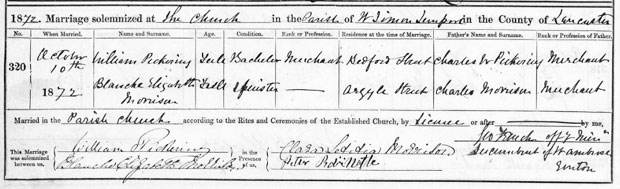 1872. Marriage solemnized at The Church in the Parish of St Simon Liverpool in the County of Lancaster
No. When Married. Name and Surname. Age. Condition. Rank or Profession. Residence at the time of Marriage. Father's Name and Surname. Rank or Profession of Father.
320 October 10th 1872 William Pickering Full Bachelor Merchant Bedford Street Charles W Pickering Merchant
Blanche Elizabeth Morrison Full Spinster Argyle Street Charles Morrison Merchant
Married in the Parish Church according to the Rites and Ceremonies of the Established Church, by Licence or after by me,
This Marriage was solemnized between us, William Pickering Blanche Elizabeth in the Presence of us, Clara Morrison Peter
Incumbent of St Ambrose
Everton